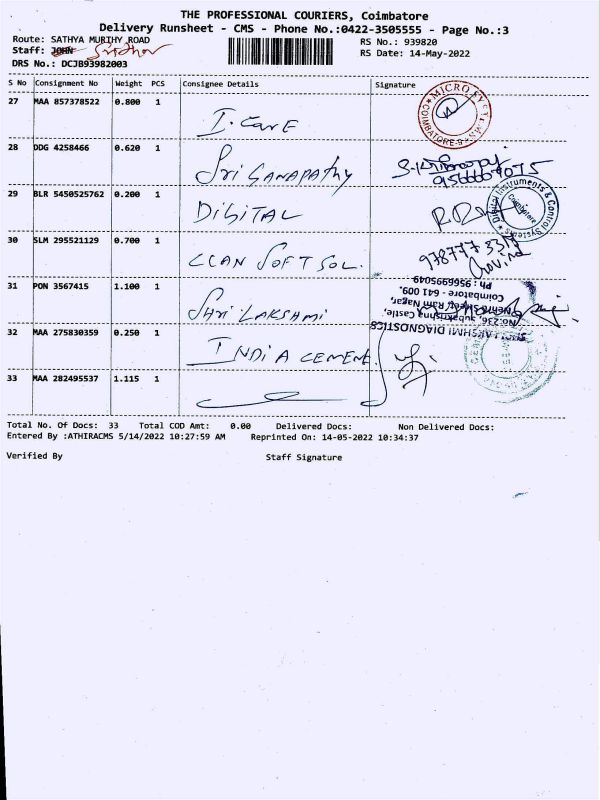 THE PROFESSIONAL COURIERS, Coimbatore
Delivery Runsheet - CMS - Phone No.:0422-3505555 - Page No.:3
Route: SATHYA MURTHY ROAD
RS No.: 939820
Staff: JOHN Sridhar
RS Date: 14-May-2022
DRS No.: DCJB93982003
S No Consignment No Weight PCS Consignee Details Signature
27 MAA 857378522 0.800 1 I-Care
MICRO
COIMBATORE-9
28 DDG 4258466 0.620 1 Sri Ganapathy
29 BLR 5450525762 0.200 1 Digital
Digital Instruments & Control Systems
Coimbatore
30 SLM 295521129 0.700 1 CCAN SOFT SOL.
31 PON 3567415 1.100 1 Shri Lakshmi
SHRI LAKSHMI DIAGNOSTICS
No:236, Subakrishna Castle,
Nehru Street, Ram Nagar,
Coimbatore - 641 009.
Ph : 9566995049
32 MAA 275830359 0.250 1 India Cement.
33 MAA 282495537 1.115 1
Total No. Of Docs: 33 Total COD Amt: 0.00 Delivered Docs: Non Delivered Docs:
Entered By :ATHIRACMS 5/14/2022 10:27:59 AM Reprinted On: 14-05-2022 10:34:37
Verified By Staff Signature